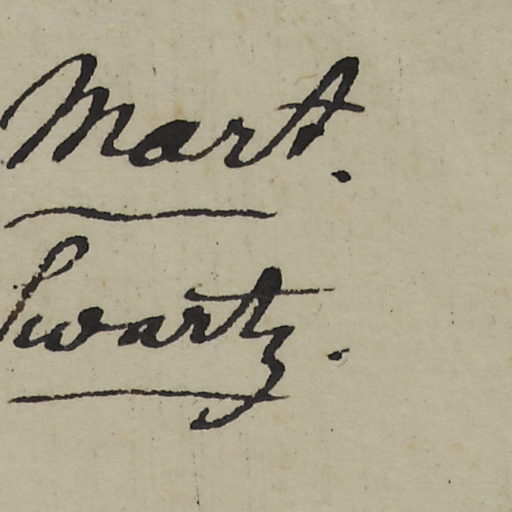 Mart.
Swartz.